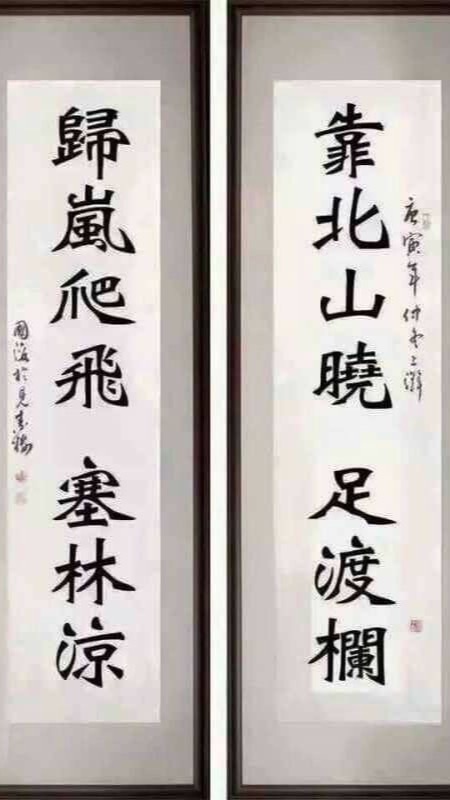 靠北山曉足渡欄
庚寅年仲冬上澣
歸嵐爬飛塞林涼
國海於見